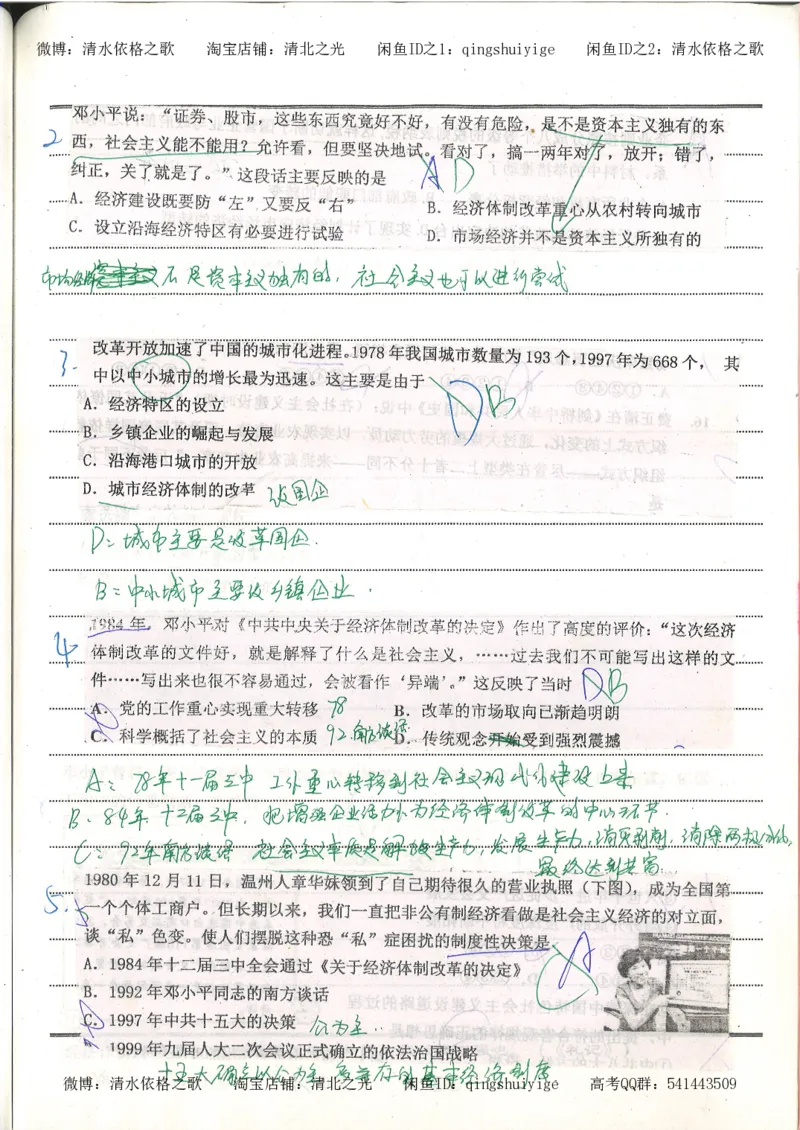 微博：清水依格之歌 淘宝店铺：清北之光 闲鱼ID之1：qingshuiyige 闲鱼ID之2：清水依格之歌
2 邓小平说：“证券、股市，这些东西究竟好不好，有没有危险，是不是资本主义独有的东
西，社会主义能不能用？允许看，但要坚决地试。看对了，搞一两年对了，放开；错了，
纠正，关了就是了。”这段话主要反映的是 A D
A．经济建设既要防“左”又要反“右”
B．经济体制改革重心从农村转向城市
C．设立沿海经济特区有必要进行试验
D．市场经济并不是资本主义所独有的
市场经济 不是资本主义独有的，社会主义也可以进行尝试
3. 改革开放加速了中国的城市化进程。1978年我国城市数量为193个，1997年为668个， 其
中以中小城市的增长最为迅速。这主要是由于 D B
A．经济特区的设立
B．乡镇企业的崛起与发展
C．沿海港口城市的开放
D．城市经济体制的改革 改国企
D：城市主要是改革国企．
B：中小城市主要改乡镇企业．
4 1984年，邓小平对《中共中央关于经济体制改革的决定》作出了高度的评价：“这次经济
体制改革的文件好，就是解释了什么是社会主义，……过去我们不可能写出这样的文
件……写出来也很不容易通过，会被看作‘异端’。”这反映了当时 D B
A．党的工作重心实现重大转移 78
B．改革的市场取向已渐趋明朗
C．科学概括了社会主义的本质 92.南方谈话
D．传统观念开始受到强烈震撼
A：78年十一届三中 工作重心转移到社会主义现代化建设上来
B．84年 十二届三中，把增强企业活力作为经济体制改革的中心环节．
C：92年南方谈话 社会主义本质是解放生产力，发展生产力，消灭剥削，消除两极分化，
最终达到共富
5. 1980年12月11日，温州人章华妹领到了自己期待很久的营业执照（下图），成为全国第
一个个体工商户。但长期以来，我们一直把非公有制经济看做是社会主义经济的对立面，
谈“私”色变。使人们摆脱这种恐“私”症困扰的制度性决策是 A
A．1984年十二届三中全会通过《关于经济体制改革的决定》
B．1992年邓小平同志的南方谈话
C．1997年中共十五大的决策 公为主..
1999年九届人大二次会议正式确立的依法治国战略
十五大确立以公为主 多并存的基本经济制度
微博：清水依格之歌 淘宝店铺：清北之光 闲鱼ID：qingshuiyige 高考QQ群：541443509